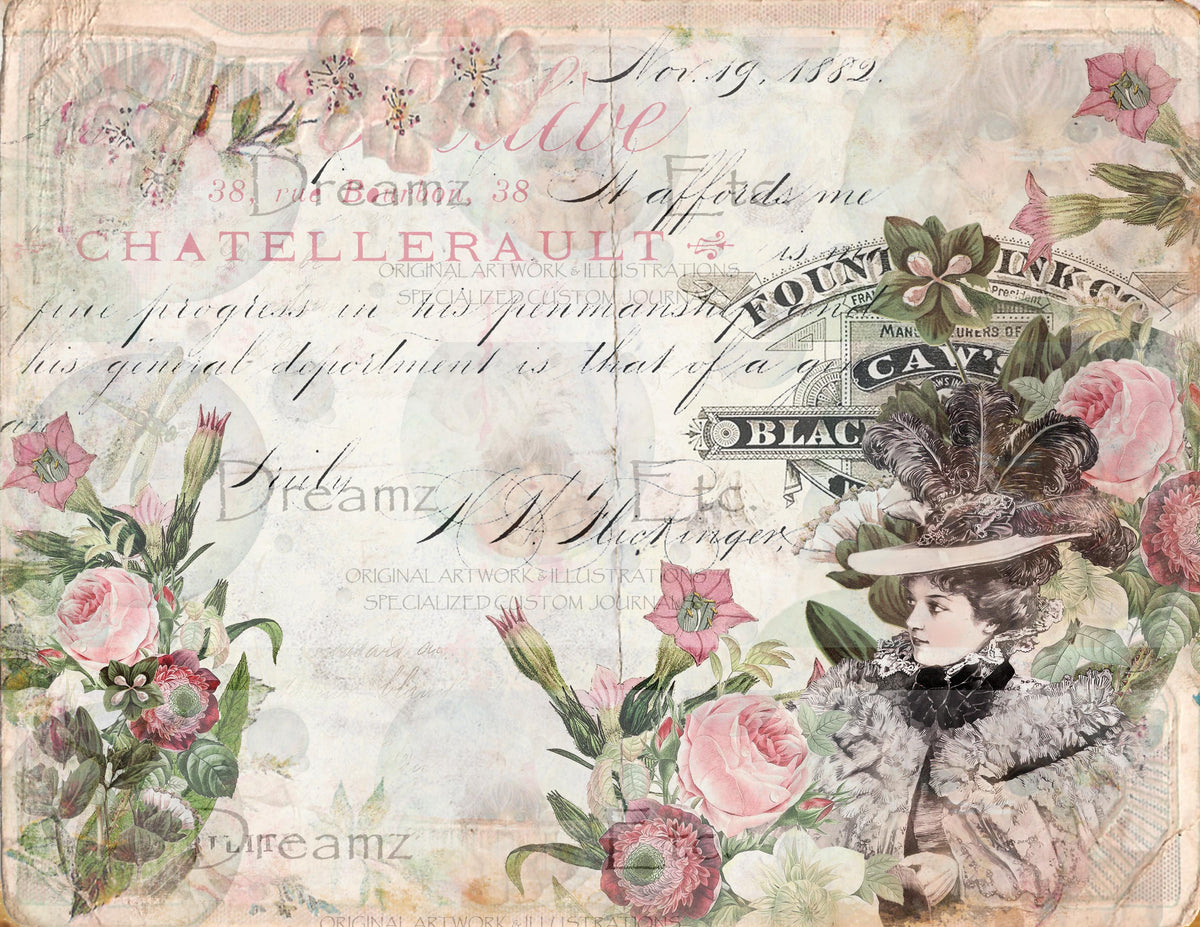 Nov. 19, 1882.
38, rue Bourbon, 38
Dreamz Etc.
It affords me
CHATELLERAULT
is
ORIGINAL ARTWORK & ILLUSTRATIONS
SPECIALIZED CUSTOM JOURNALS
FOUNT INK CO
President
fine progress in his penmanship and
MANUFACTURERS OF
CAW'S
his general deportment is that of a g
an
BLAC
Truly
Dreamz Etc.
Flickinger,
ORIGINAL ARTWORK & ILLUSTRATIONS
SPECIALIZED CUSTOM JOURNALS
Dreamz Etc.
ORIGINAL ARTWORK & ILLUSTRATIONS